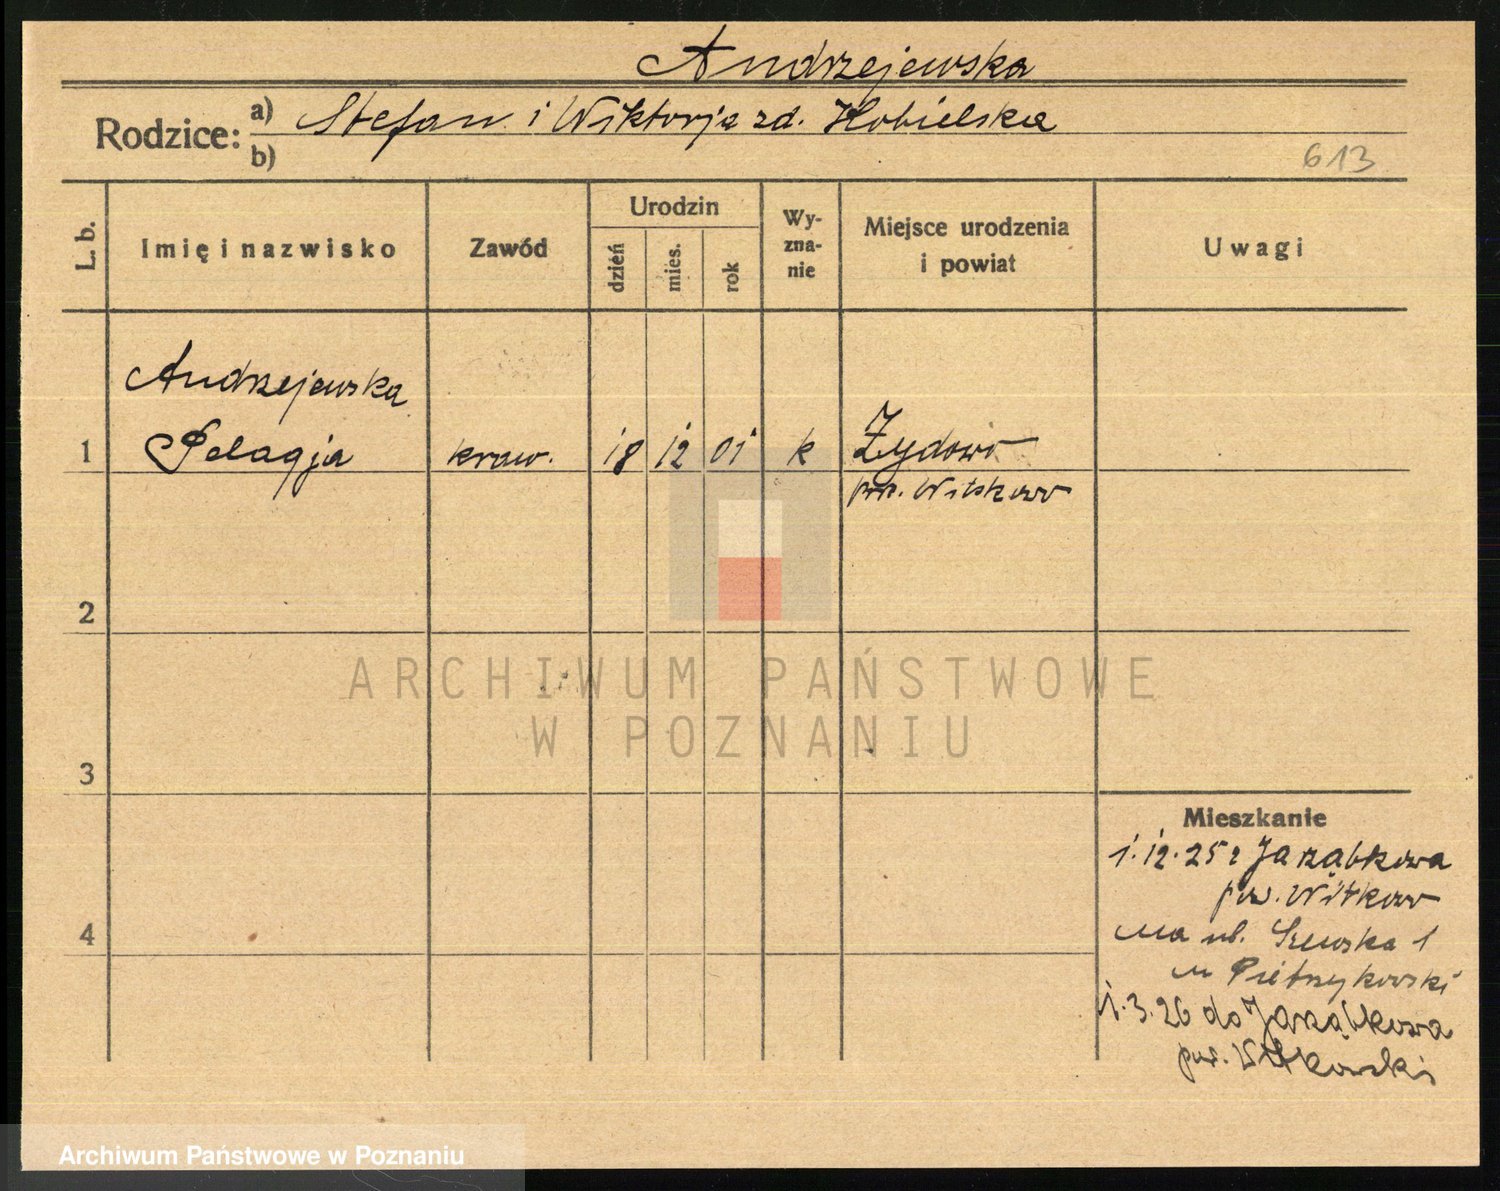 Andrzejewska
Rodzice: a) Stefan i Wiktorja zd. Kobielska
b)
613
L. b.
Imię i nazwisko
Zawód
Urodzin
dzień
mies.
rok
Wy-
zna-
nie
Miejsce urodzenia
i powiat
Uwagi
Andrzejewska
1 Pelagja kraw. 18 12 01 k Żydowo
pow. Witkowo
2
3
4
Mieszkanie
1.12.25 z Jarząbkowa
pow. Witkowo
na ul. Szewska 1
u Pietrzykowski
1.3.26 do Jarząbkowa
pow. Witkowski
ARCHIWUM PAŃSTWOWE
W POZNANIU
Archiwum Państwowe w Poznaniu